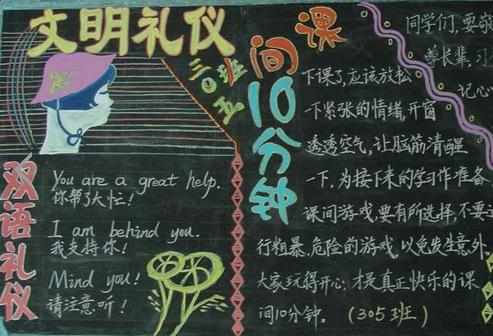 文明礼仪
三〇五班
双语礼仪
You are a great help.
你帮了大忙！
I am behind you.
我支持你！
Mind you!
请注意听！
课间10分钟
下课了，应该放松
下紧张的情绪，开窗
透透空气，让脑筋清醒
一下，为接下来的学习作准备
课间游戏，要有所选择，不要
行粗暴、危险的游戏，以免发生意外
大家玩得开心，才是真正快乐的课
间10分钟。（305班）
同学们，要
学长辈，
记心